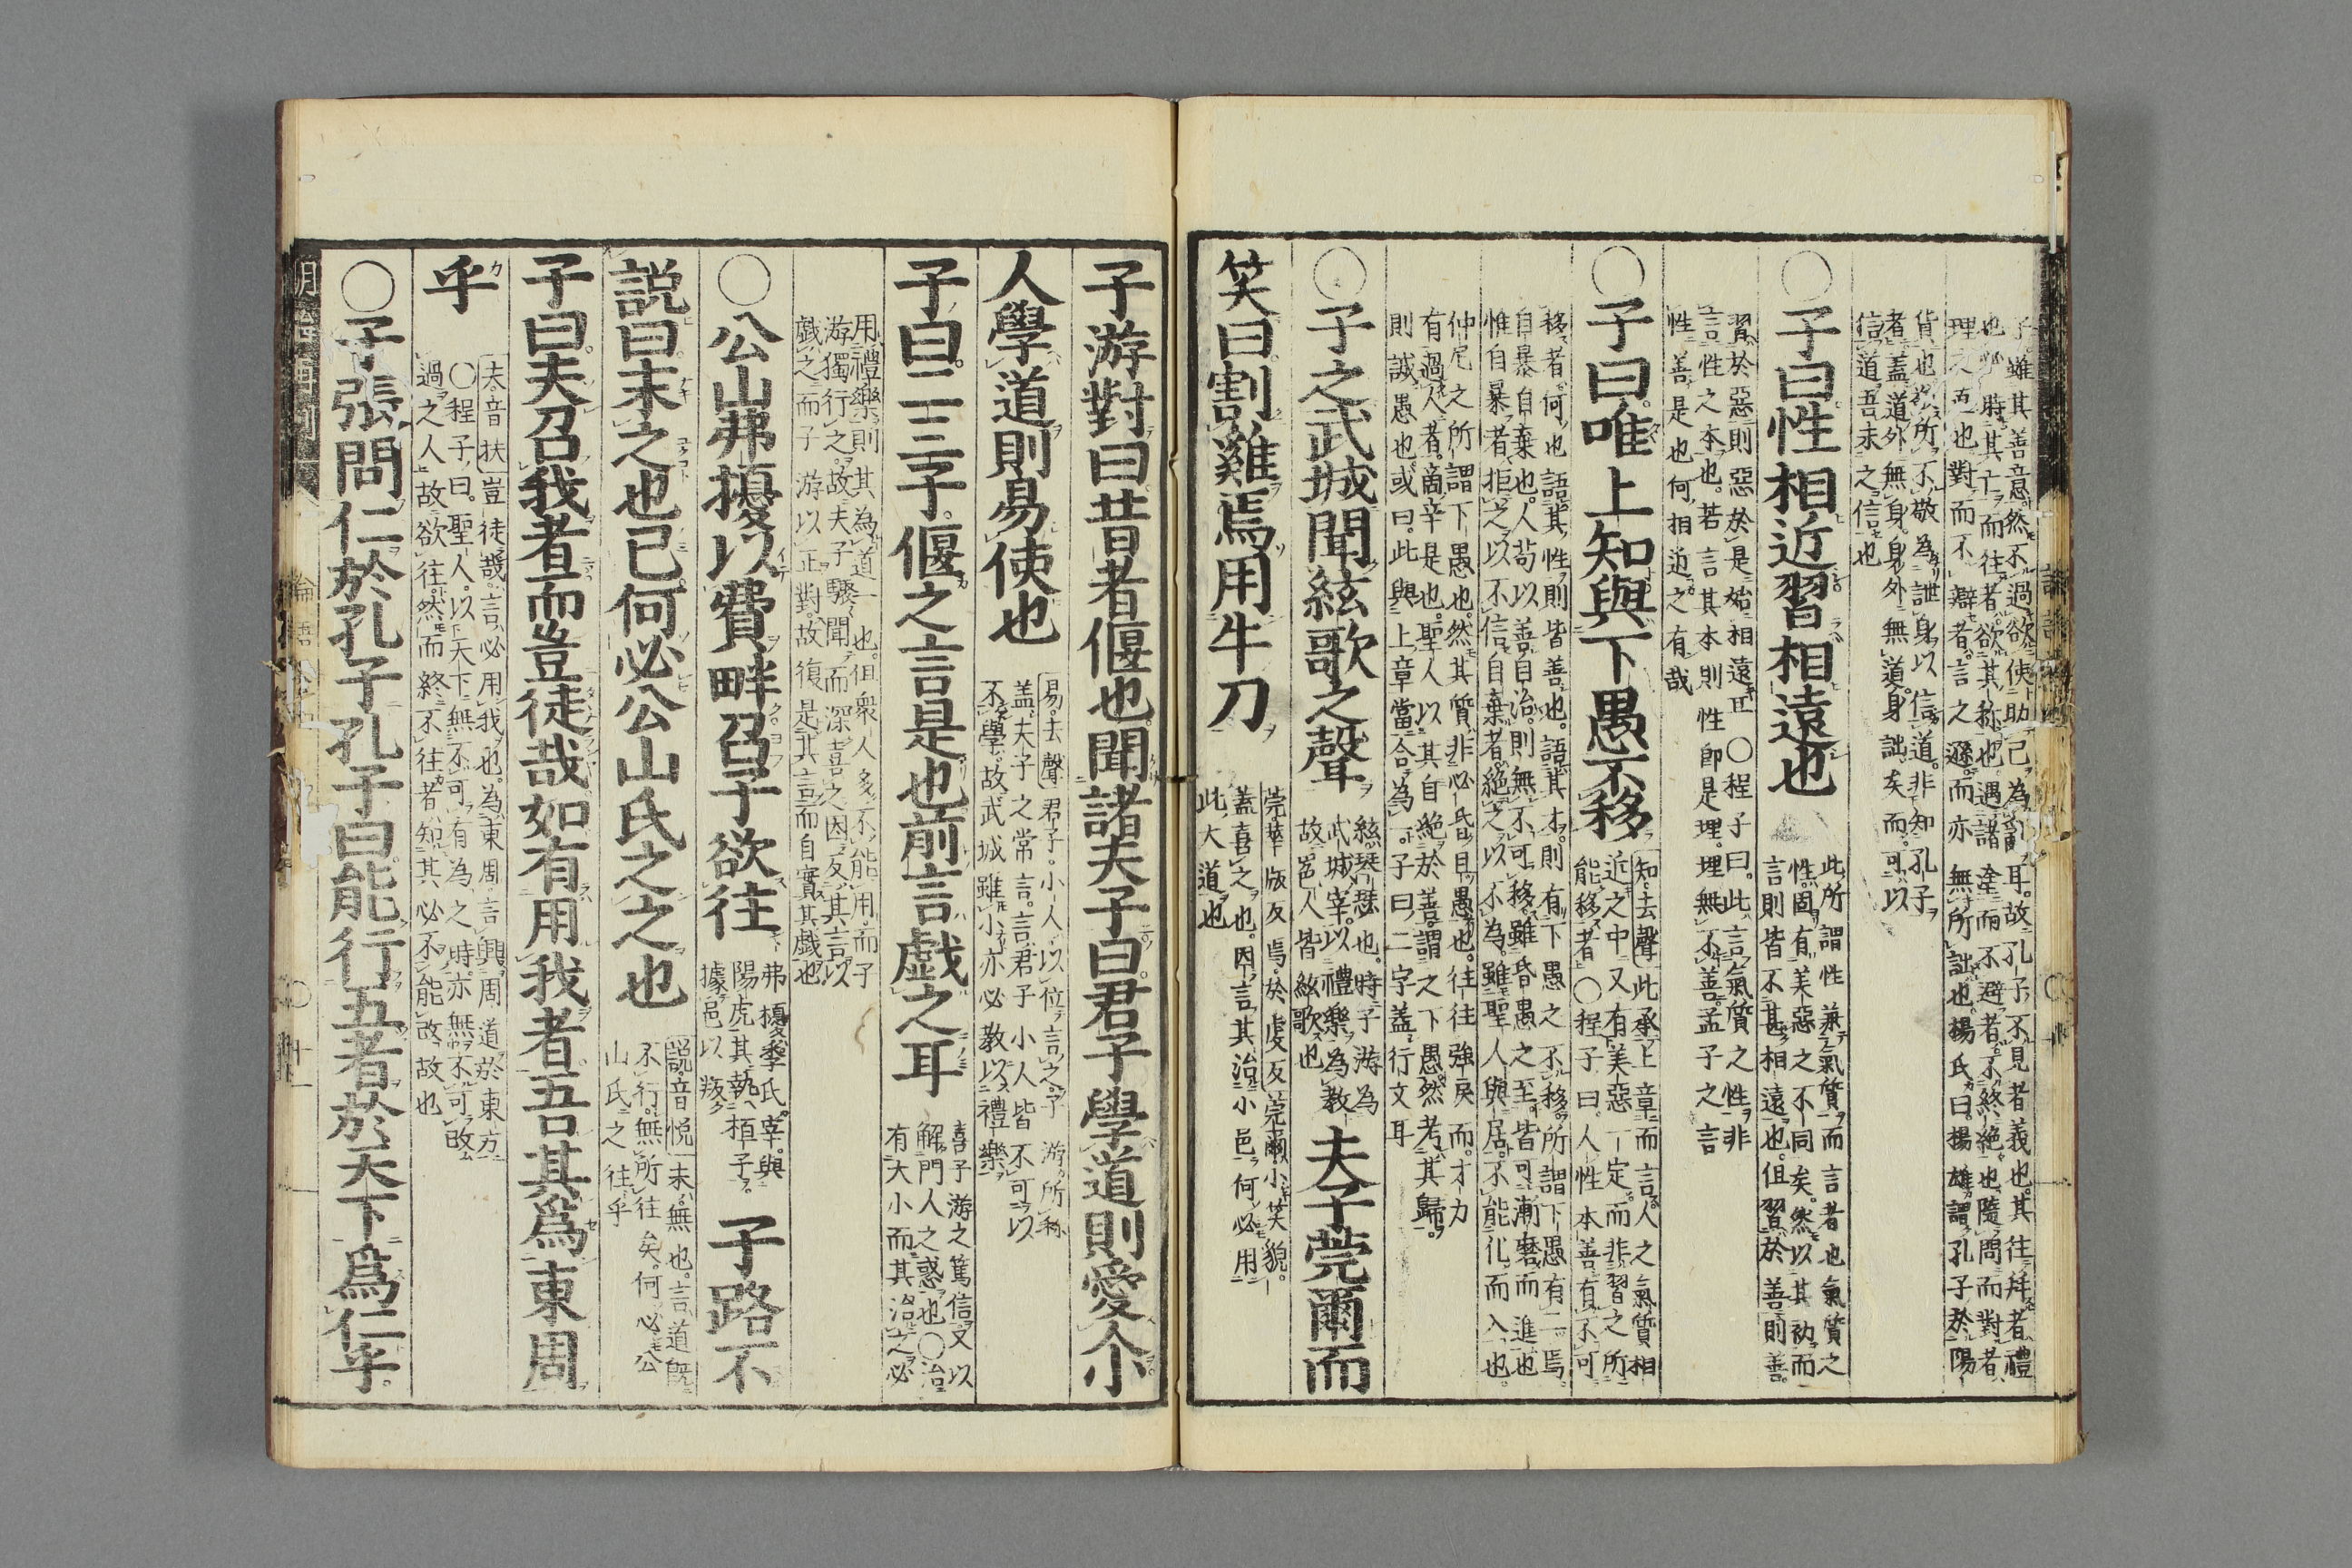 子雖其善意然不過欲使助己為亂耳故孔子不見者義也其往拜者禮
也必時其亡而往者欲其称也遇諸塗而不避者不終絶也隨問而對者
理之直也對而不辯者言之遜而亦無所詘也楊氏曰揚雄謂孔子於陽
貨也敬所不敬為詘身以信道非知孔子
者蓋道外無身身外無道身詘矣而可以
信道吾未之信也
○子曰性相近習相遠也
此所謂性兼氣質而言者也氣質之
性固有美惡之不同矣然以其初而
言則皆不甚相遠也但習於善則善
習於惡則惡於是始相遠耳○程子曰此言氣質之性非
言性之本也若言其本則性即是理理無不善孟子之言
性善是也何相近之有哉
○子曰唯上知與下愚不移
知去聲此承上章而言人之氣質相
近之中又有美惡一定而非習之所
能移者○程子曰人性本善有不可
移者何也語其性則皆善也語其才則有下愚之不移所謂下愚有二焉
自暴自棄也人苟以善自治則無不可移雖昏愚之至皆可漸磨而進也
惟自暴者拒之以不信自棄者絶之以不為雖聖人與居不能化而入也
仲尼之所謂下愚也然其質非必昏且愚也往往強戾而才力
有過人者商辛是也聖人以其自絶於善謂之下愚然考其歸
則誠愚也或曰此與上章當合為一子曰二字蓋衍文耳
○子之武城聞絃歌之聲
絃琴瑟也時子游為
武城宰以禮樂為教
故邑人皆絃歌也
夫子莞爾而
笑曰割雞焉用牛刀
莞華版反焉於虔反莞爾小笑貌
蓋喜之也因言其治小邑何必用
此大道也
子游對曰昔者偃也聞諸夫子曰君子學道則愛人小
人學道則易使也
易去聲君子小人以位言之子游所称
蓋夫子之常言言君子小人皆不可以
不學故武城雖小亦必教以禮樂
子曰二三子偃之言是也前言戯之耳
喜子游之篤信又以
解門人之惑也○治
有大小而其治之必
用禮樂則其為道一也但衆人多不能用而子
游獨行之故夫子驟聞而深喜之因反其言以
戯之而子游以正對故復是其言而自實其戯也
○公山弗擾以費畔召子欲往
弗擾季氏宰與
陽虎共執桓子
據邑以叛
子路不
説曰末之也已何必公山氏之之也
説音悦末無也言道既
不行無所往矣何必公
山氏之往乎
子曰夫召我者而豈徒哉如有用我者吾其爲東周
乎
夫音扶豈徒哉言必用我也為東周言興周道於東方
○程子曰聖人以天下無不可有為之時亦無不可改
過之人故欲往然而終不往者知其必不能改故也
○子張問仁於孔子孔子曰能行五者於天下爲仁乎